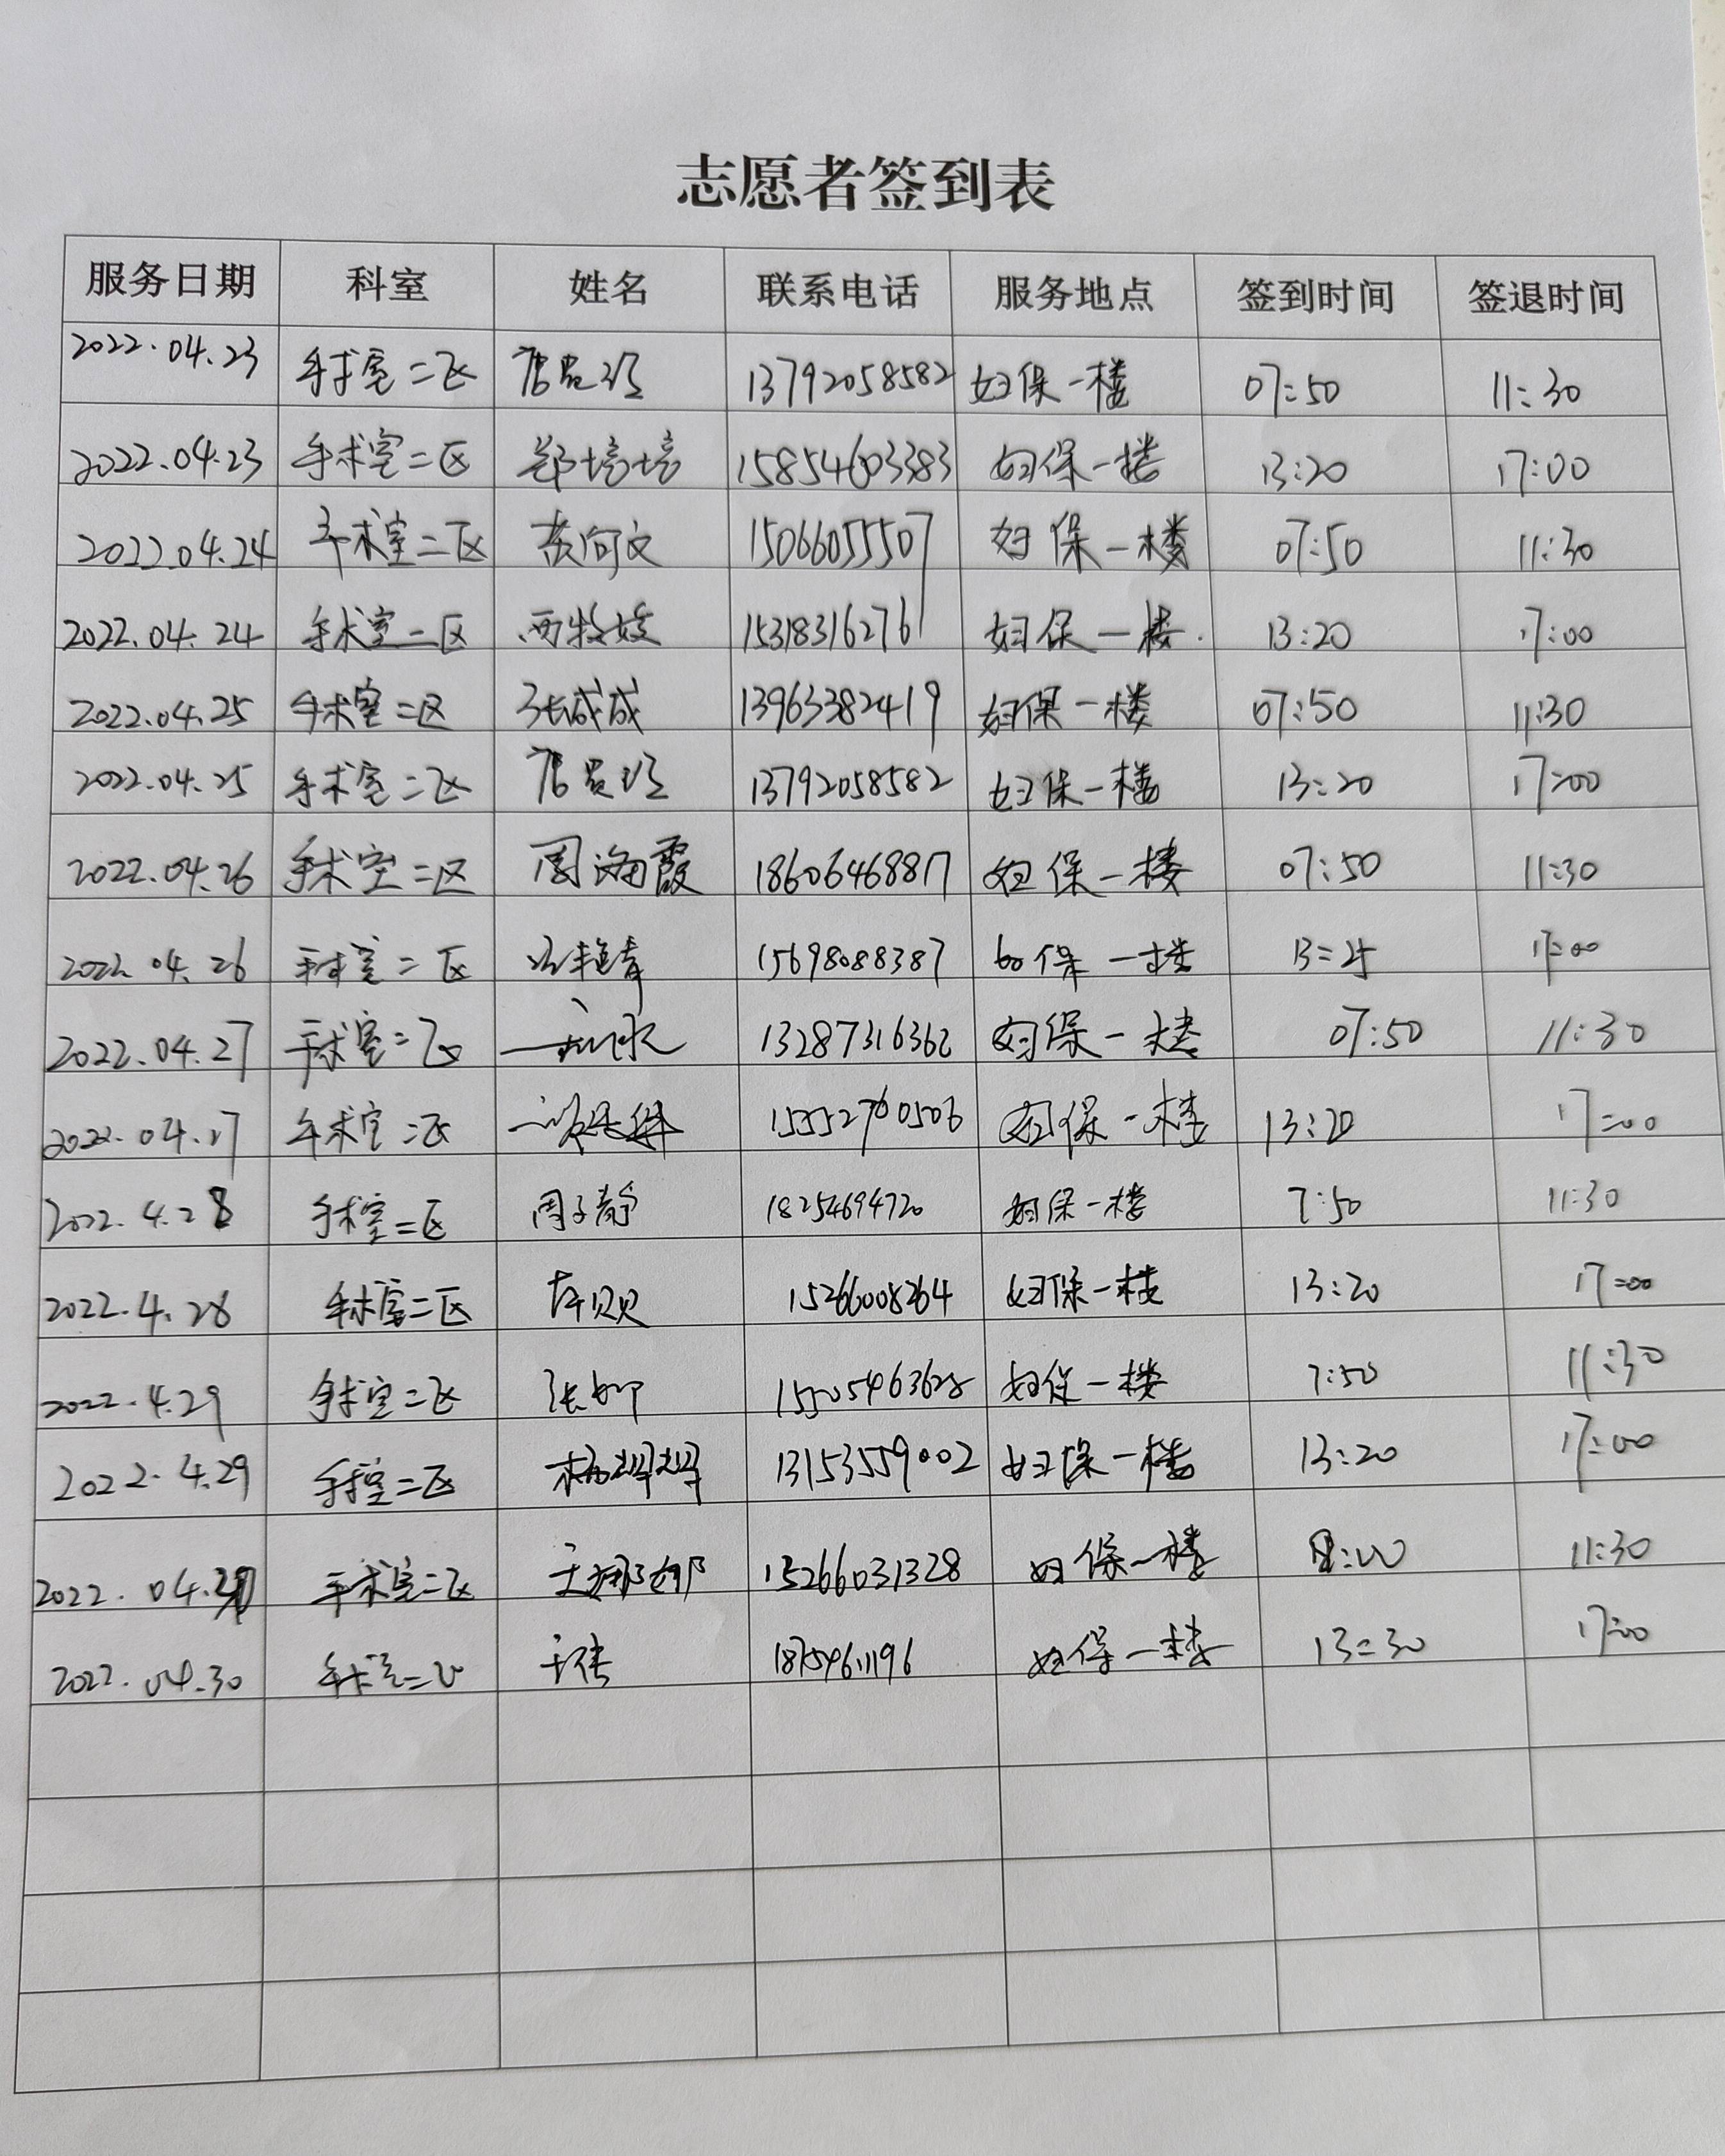 志愿者签到表
服务日期 科室 姓名 联系电话 服务地点 签到时间 签退时间
2022.04.23 手术室二区 13792058582 妇保一楼 07:50 11:30
2022.04.23 手术室二区 郑培培 15854603383 妇保一楼 13:20 17:00
2022.04.24 手术室二区 15066055507 妇保一楼 07:50 11:30
2022.04.24 手术室二区 15318316276 妇保一楼 13:20 17:00
2022.04.25 手术室二区 张成成 13963382419 妇保一楼 07:50 11:30
2022.04.25 手术室二区 13792058582 妇保一楼 13:20 17:00
2022.04.26 手术室二区 周海霞 18606468817 妇保一楼 07:50 11:30
2022.04.26 手术室二区 15698088387 妇保一楼 17:00
2022.04.27 手术室二区 13287316362 妇保一楼 07:50 11:30
2022.04.27 手术室二区 15552760506 妇保一楼 13:20 17:00
2022.4.28 手术室二区 周子静 18254694720 妇保一楼 7:50 11:30
2022.4.28 手术室二区 15266008264 妇保一楼 13:20 17:00
2022.4.29 手术室二区 妇保一楼 7:50 11:30
2022.4.29 手术室二区 13153559002 妇保一楼 13:20 17:00
2022.04. 手术室二区 王娜娜 15266031328 妇保一楼 8:00 11:30
2022.04.30 手术室二区 妇保一楼 13:30 17:00